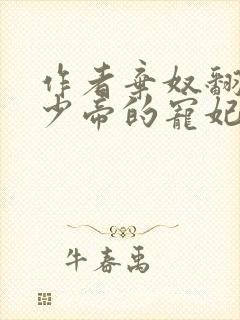 作者弃奴翻
少帝的宠妃
牛春禹